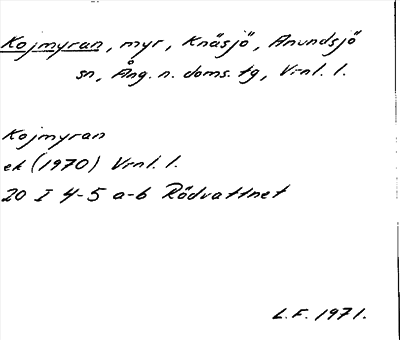 Kojmyran, myr, Knäsjö, Anundsjö
sn, Ång. n. doms. tg, Vrnl. l.
Kojmyran
ek (1970) Vrnl. l.
20 I 4-5 a-b Rödvattnet
L.F. 1971.